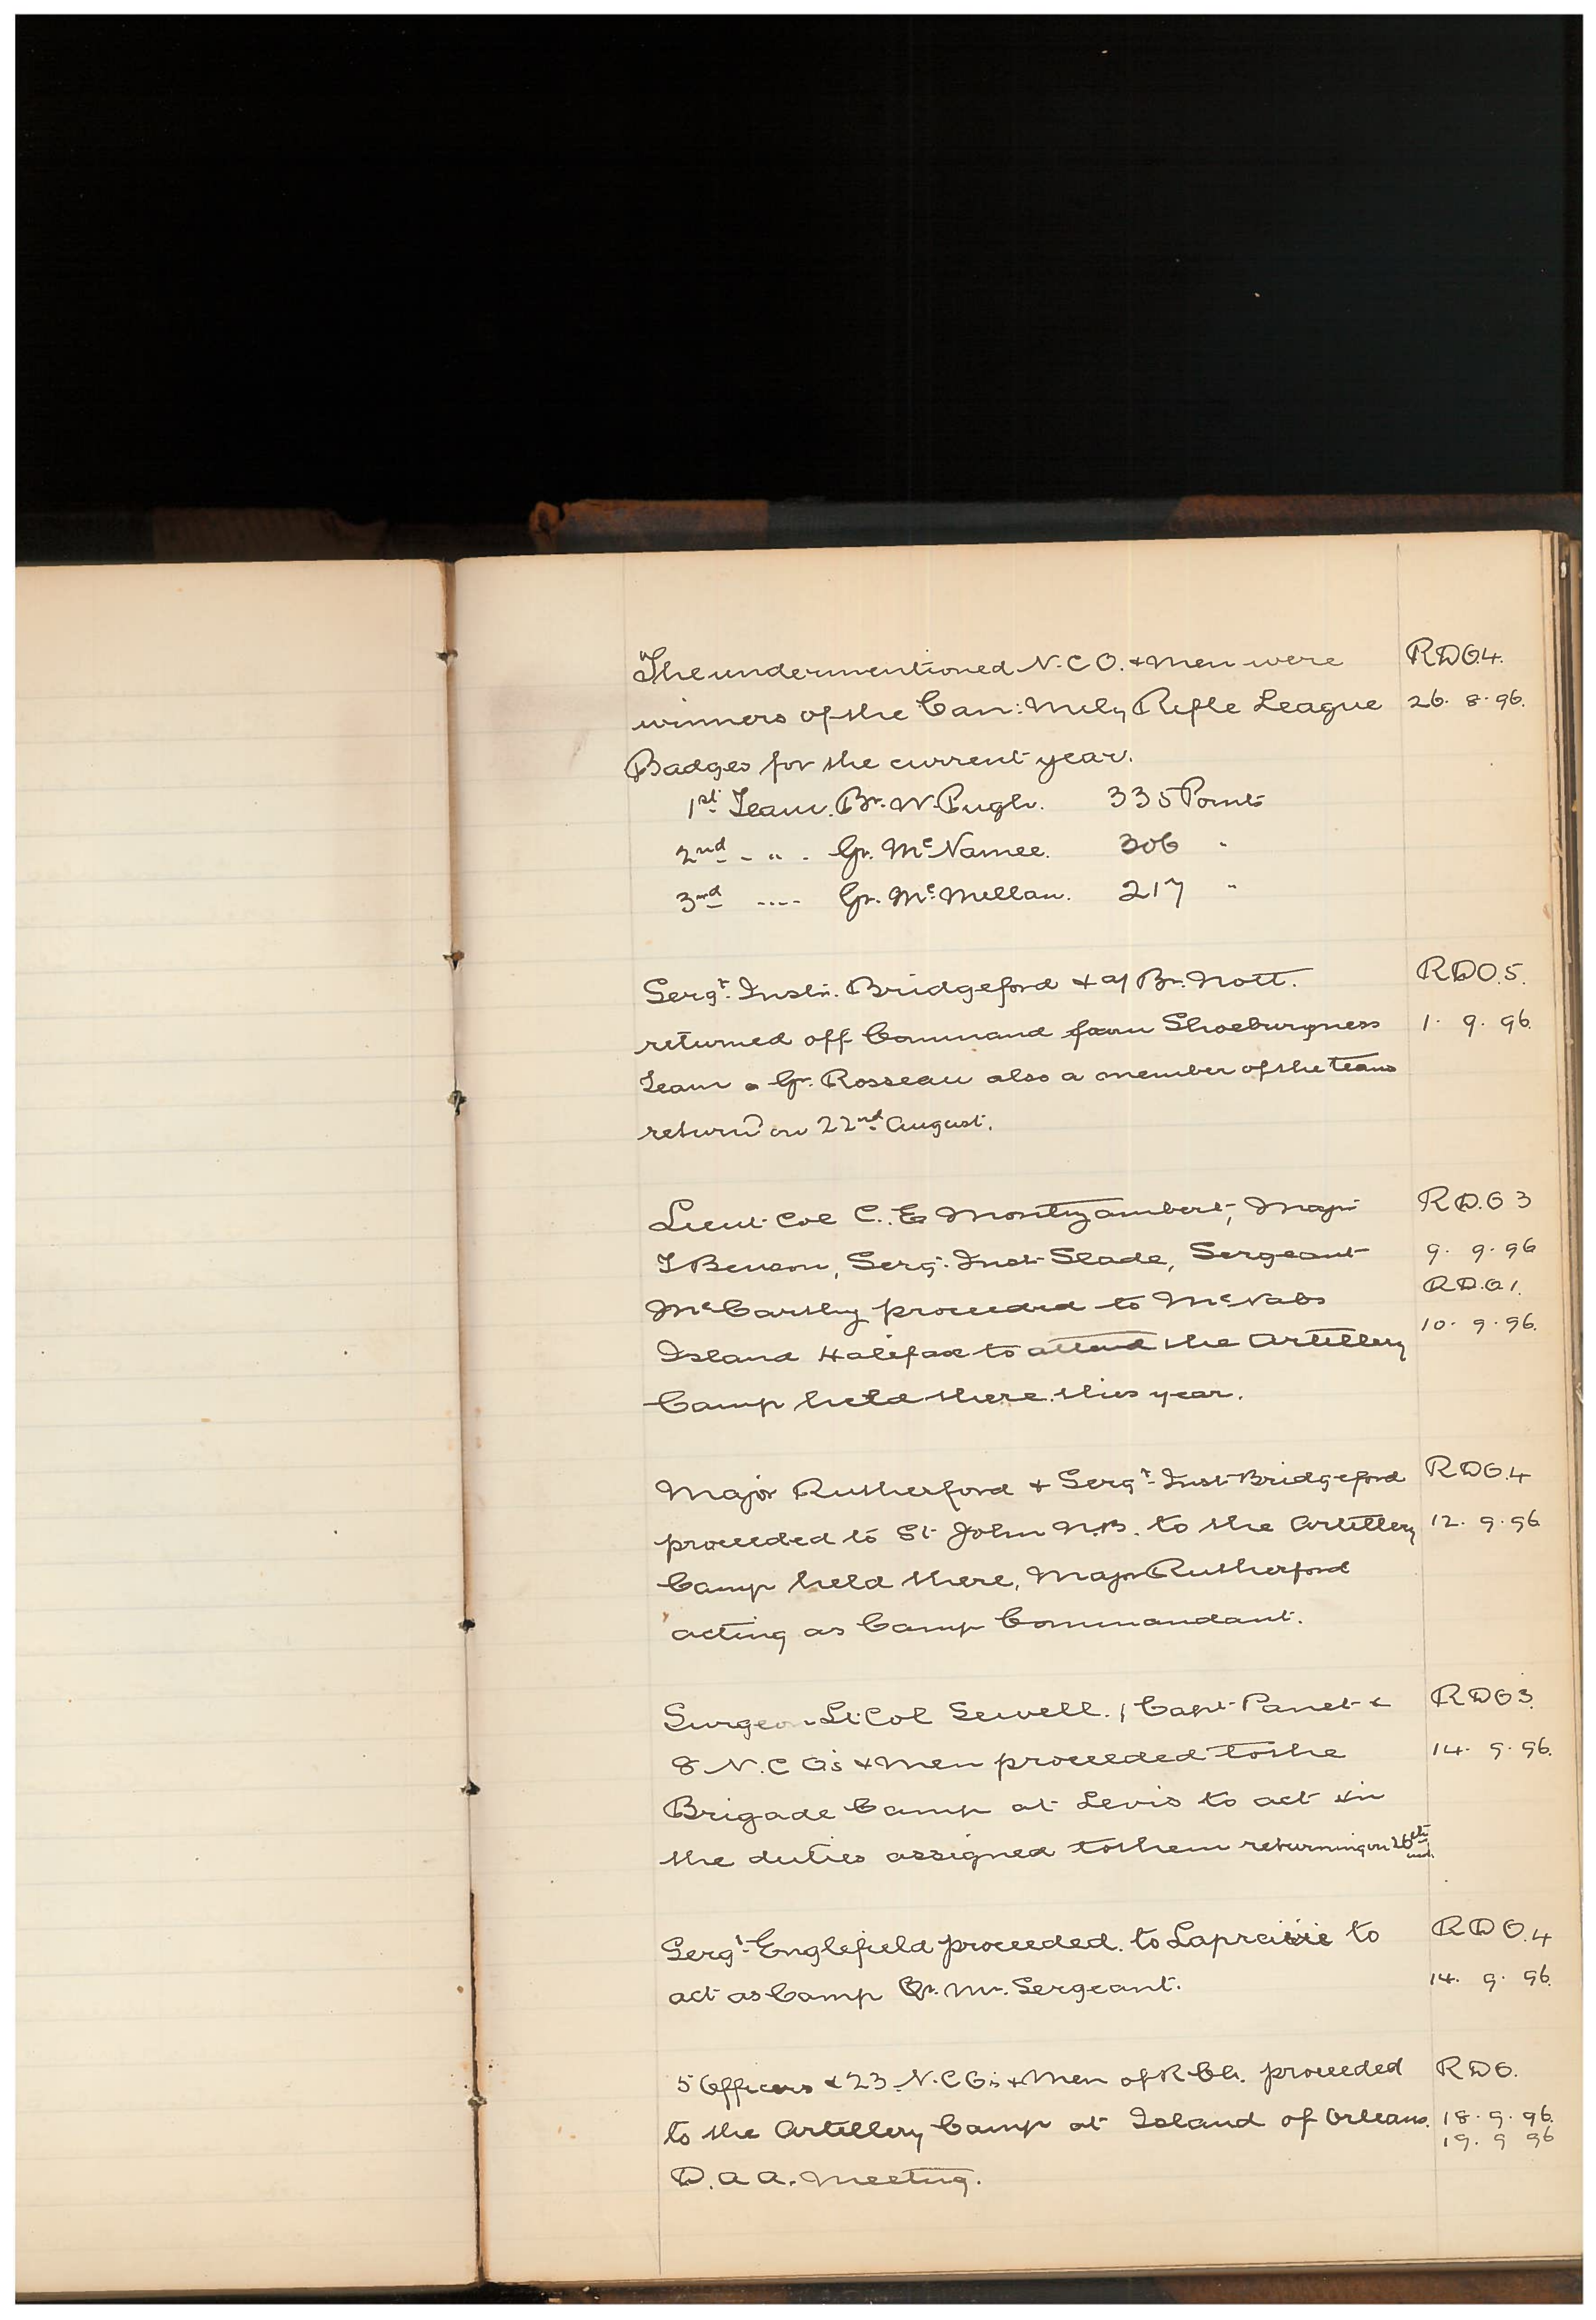 The undermentioned N.C.O. & men were RDO.4.
winners of the Can: Mily Rifle League 26. 8. 96.
Badges for the current year.
1st Team. Br. W. Pugh. 335 Points
2nd - " - Gr. McNamee. 306 "
3rd ---- Gr. McMellan. 217 "
Sergt. Instr. Bridgeford & a/ Br. Nott. RDO.5.
returned off Command from Shoeburyness 1. 9. 96.
Team & Gr. Rosseau also a member of the team
returnd on 22nd August.
Lieut Col C. E. Montizambert, Major RD.O 3
T Benson, Sergt. Inst Slade, Sergeant 9. 9. 96
McCarthy proceeded to McNabs RD.O 1.
Island Halifax to attend the Artillery 10. 9. 96.
Camp held there this year.
Major Rutherford & Sergt. Inst Bridgeford RDO.4
proceeded to St John N.B. to the Artillery 12. 9. 96
Camp held there, Major Rutherford
acting as Camp Commandant.
Surgeon Lt Col Sewell. 1 Capt Panet & RDO 3.
8 N.C.O's & men proceeded to the 14. 9. 96.
Brigade Camp at Levis to act in
the duties assigned to them returning on 26th inst.
Sergt. Englefield proceeded to Laprairie to RDO.4
act as Camp Qr. Mr. Sergeant. 14. 9. 96.
5 Officers & 23 N.C.O's & Men of R.C.A. proceeded RDO.
to the Artillery Camp at Island of Orleans. 18. 9. 96.
19. 9 96
D.A.A. Meeting.